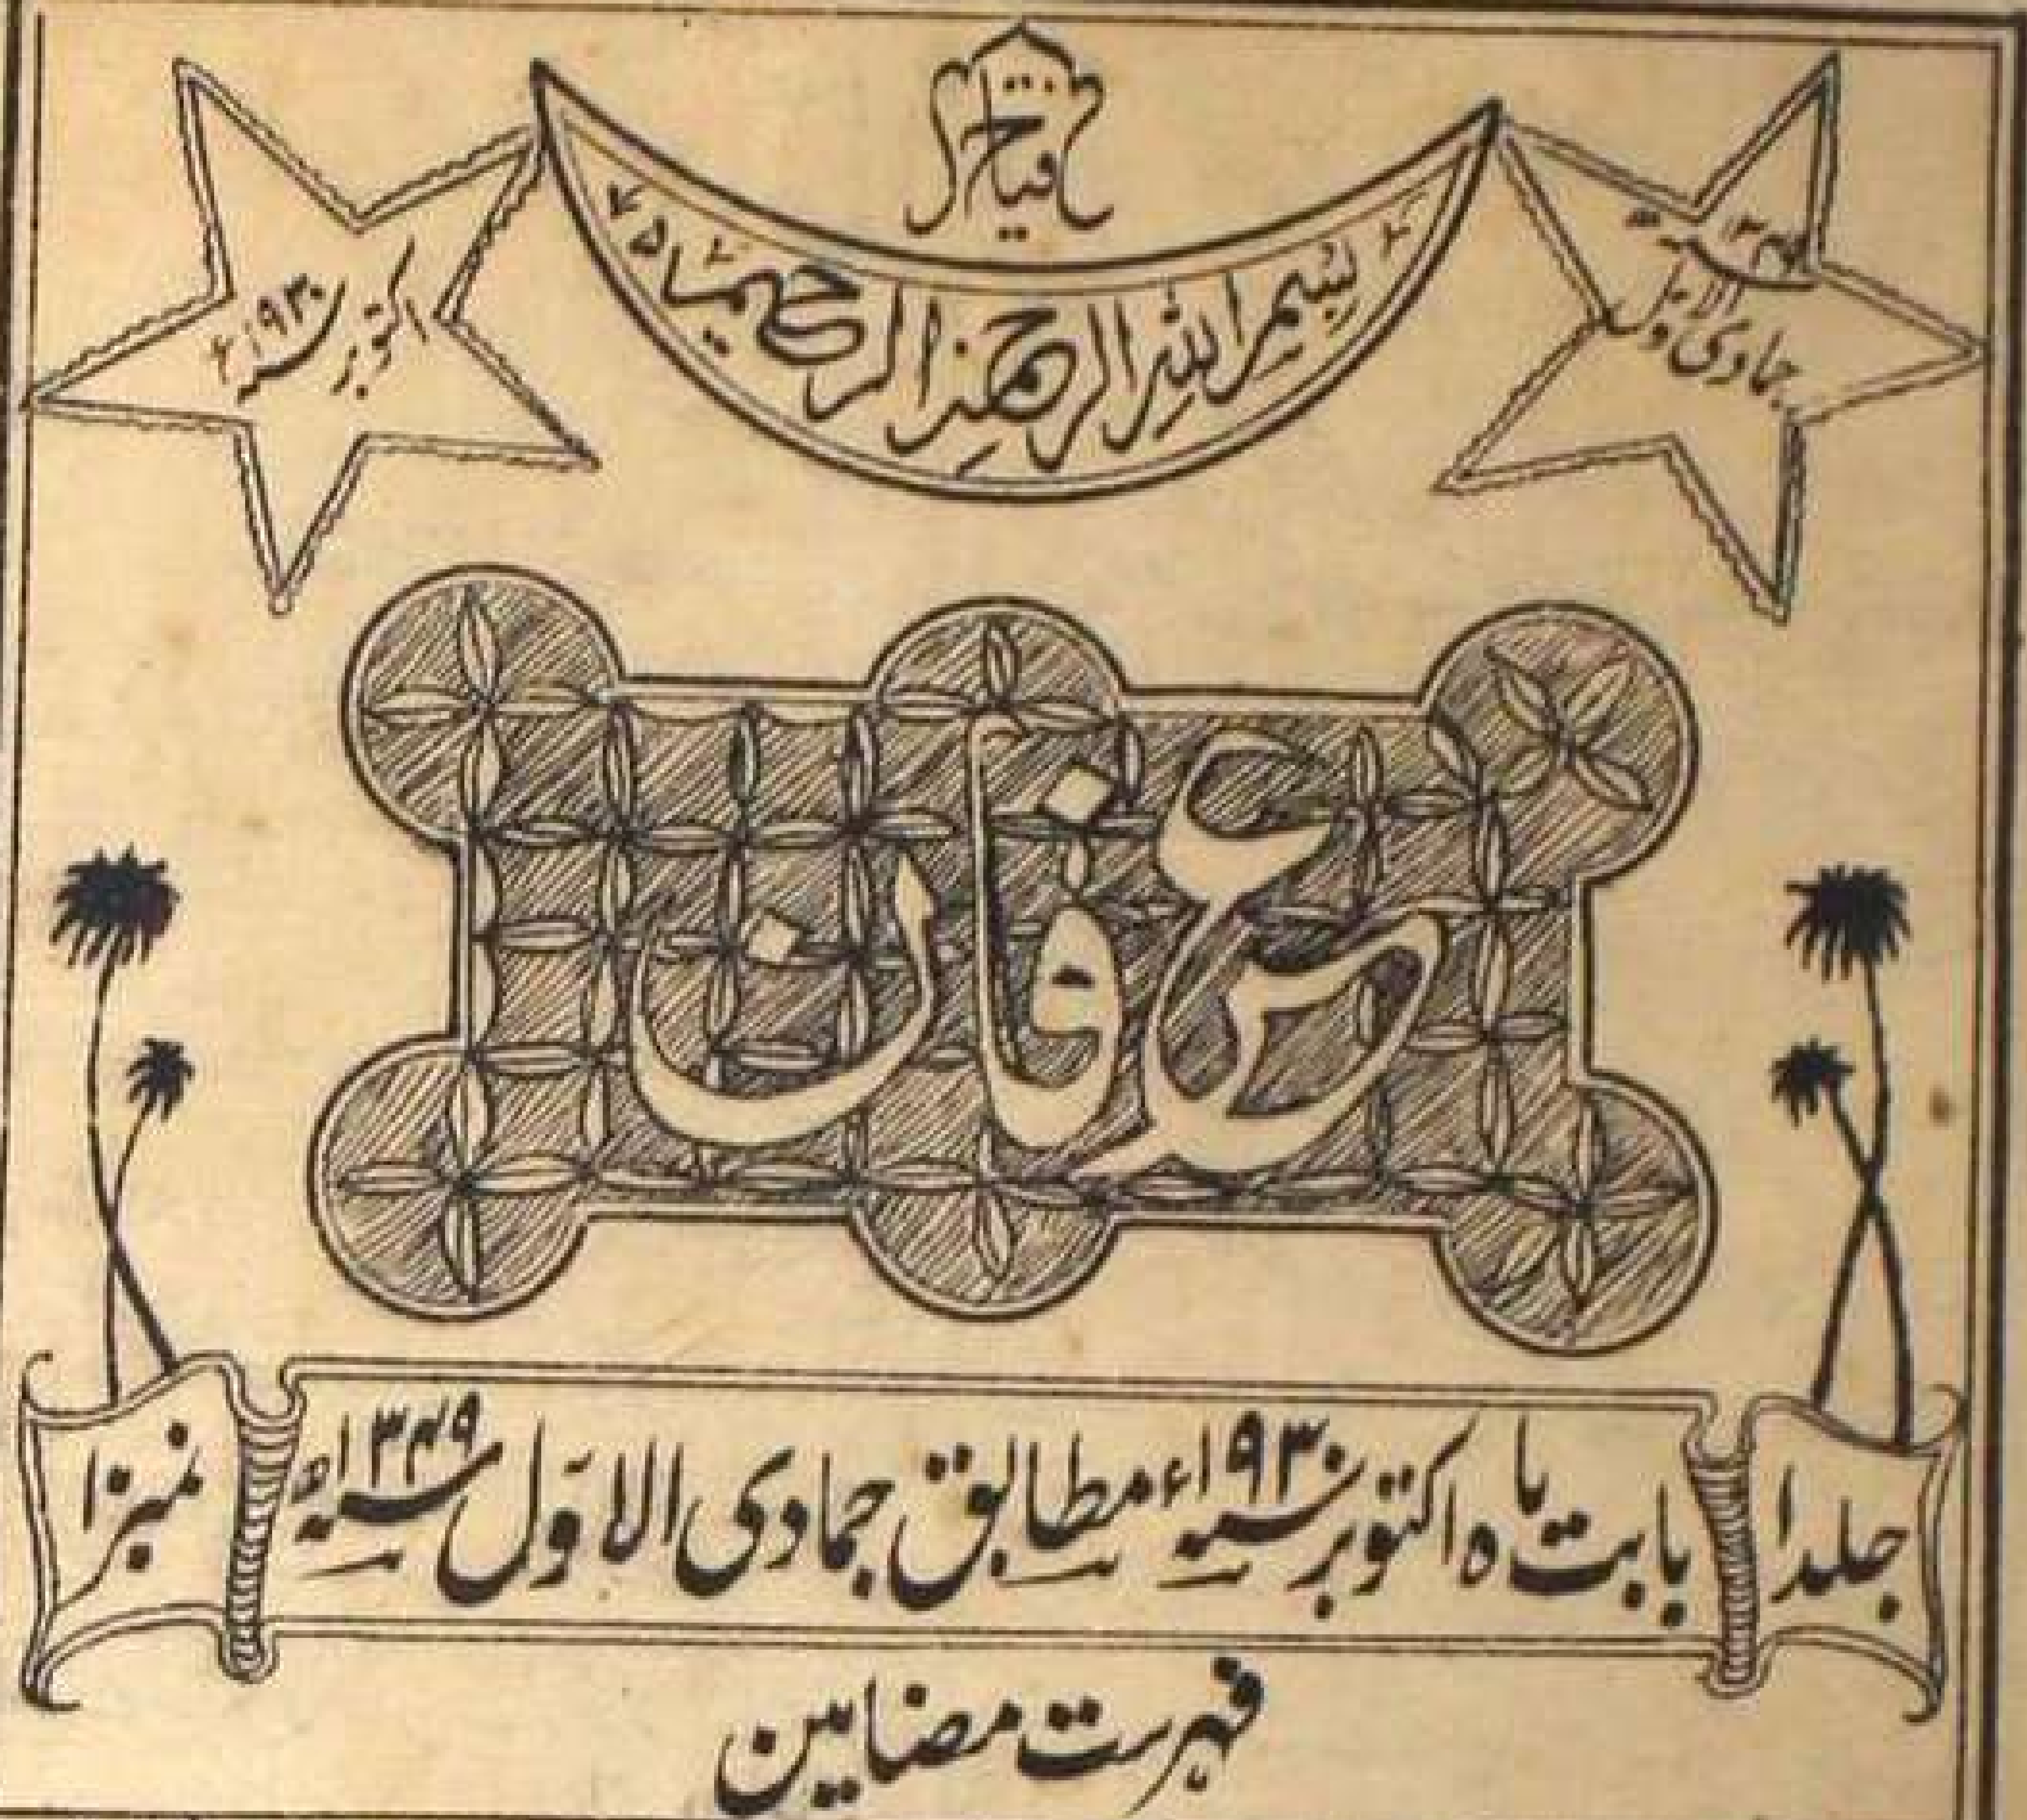 یا فتاح
بسم اللہ الرحمن الرحیم
جمادی الاول
اکتوبر سنہ ۱۹۳۰ء
عرفان
جلد ۱
بابت ماہ اکتوبر سنہ ۱۹۳۰ء مطابق جمادی الاول سنہ ۱۳۴۹ھ
نمبر ۱۰
فہرست مضامین